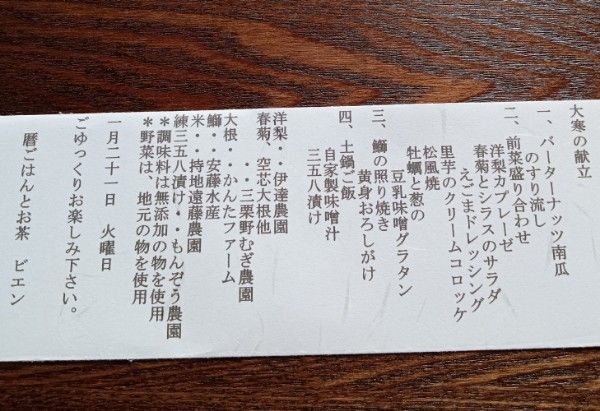 大寒の献立
一、バーターナッツ南瓜
のすり流し
二、前菜盛り合わせ
洋梨カプレーゼ
春菊とシラスのサラダ
えごまドレッシング
里芋のクリームコロッケ
松風焼
牡蠣と葱の
豆乳味噌グラタン
三、鰤の照り焼き
黄身おろしがけ
四、土鍋ご飯
自家製味噌汁
三五八漬け
洋梨・・伊達農園
春菊、空芯大根他
・・三栗野むぎ農園
大根・・かんたファーム
鰤・・安藤水産
米・・持地遠藤農園
練三五八漬け・・もんぞう農園
＊調味料は無添加の物を使用
＊野菜は、地元の物を使用
一月二十一日　火曜日
ごゆっくりお楽しみ下さい。
暦ごはんとお茶　ビエン